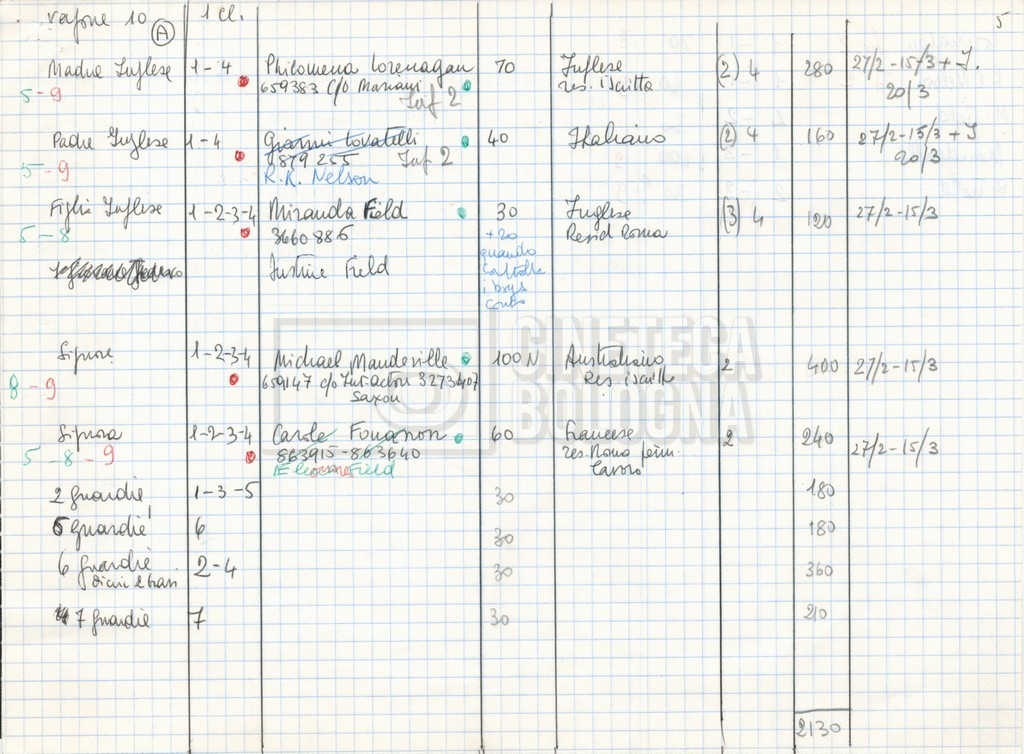 vagone 10 A 1 cl. 5
Madre Inglese 1-4 Philomena Lorenagan 70 Inglese (2) 4 280 27/2-15/3 + I.
5-9 659383 c/o Mariani res. iscritta 20/3
Inf 2
Padre Inglese 1-4 Gianni Lovatelli 40 Italiano (2) 4 160 27/2-15/3 + I
5-9 6879255 Inf 2 20/3
R.R. Nelson
Figlie Inglese 1-2-3-4 Miranda Field 30 Inglese (3) 4 120 27/2-15/3
5-8 3660886 + 20 Resid Roma
quando
Justine Field
i boys
CINETECA
BOLOGNA
Signore 1-2-3-4 Michael Mandeville 100 N Australiano 2 400 27/2-15/3
8-9 659147 c/o 3273407 Res. iscritt
Saxon
Signora 1-2-3-4 Carole Fouanon 60 Francese 2 240 27/2-15/3
5-8-9 863915-863640 res. Roma perm.
Eleonore Field lavoro
2 guardie 1-3-5 30 180
6 guardie 6 30 180
6 guardie 2-4 30 360
7 guardie 7 30 210
2130